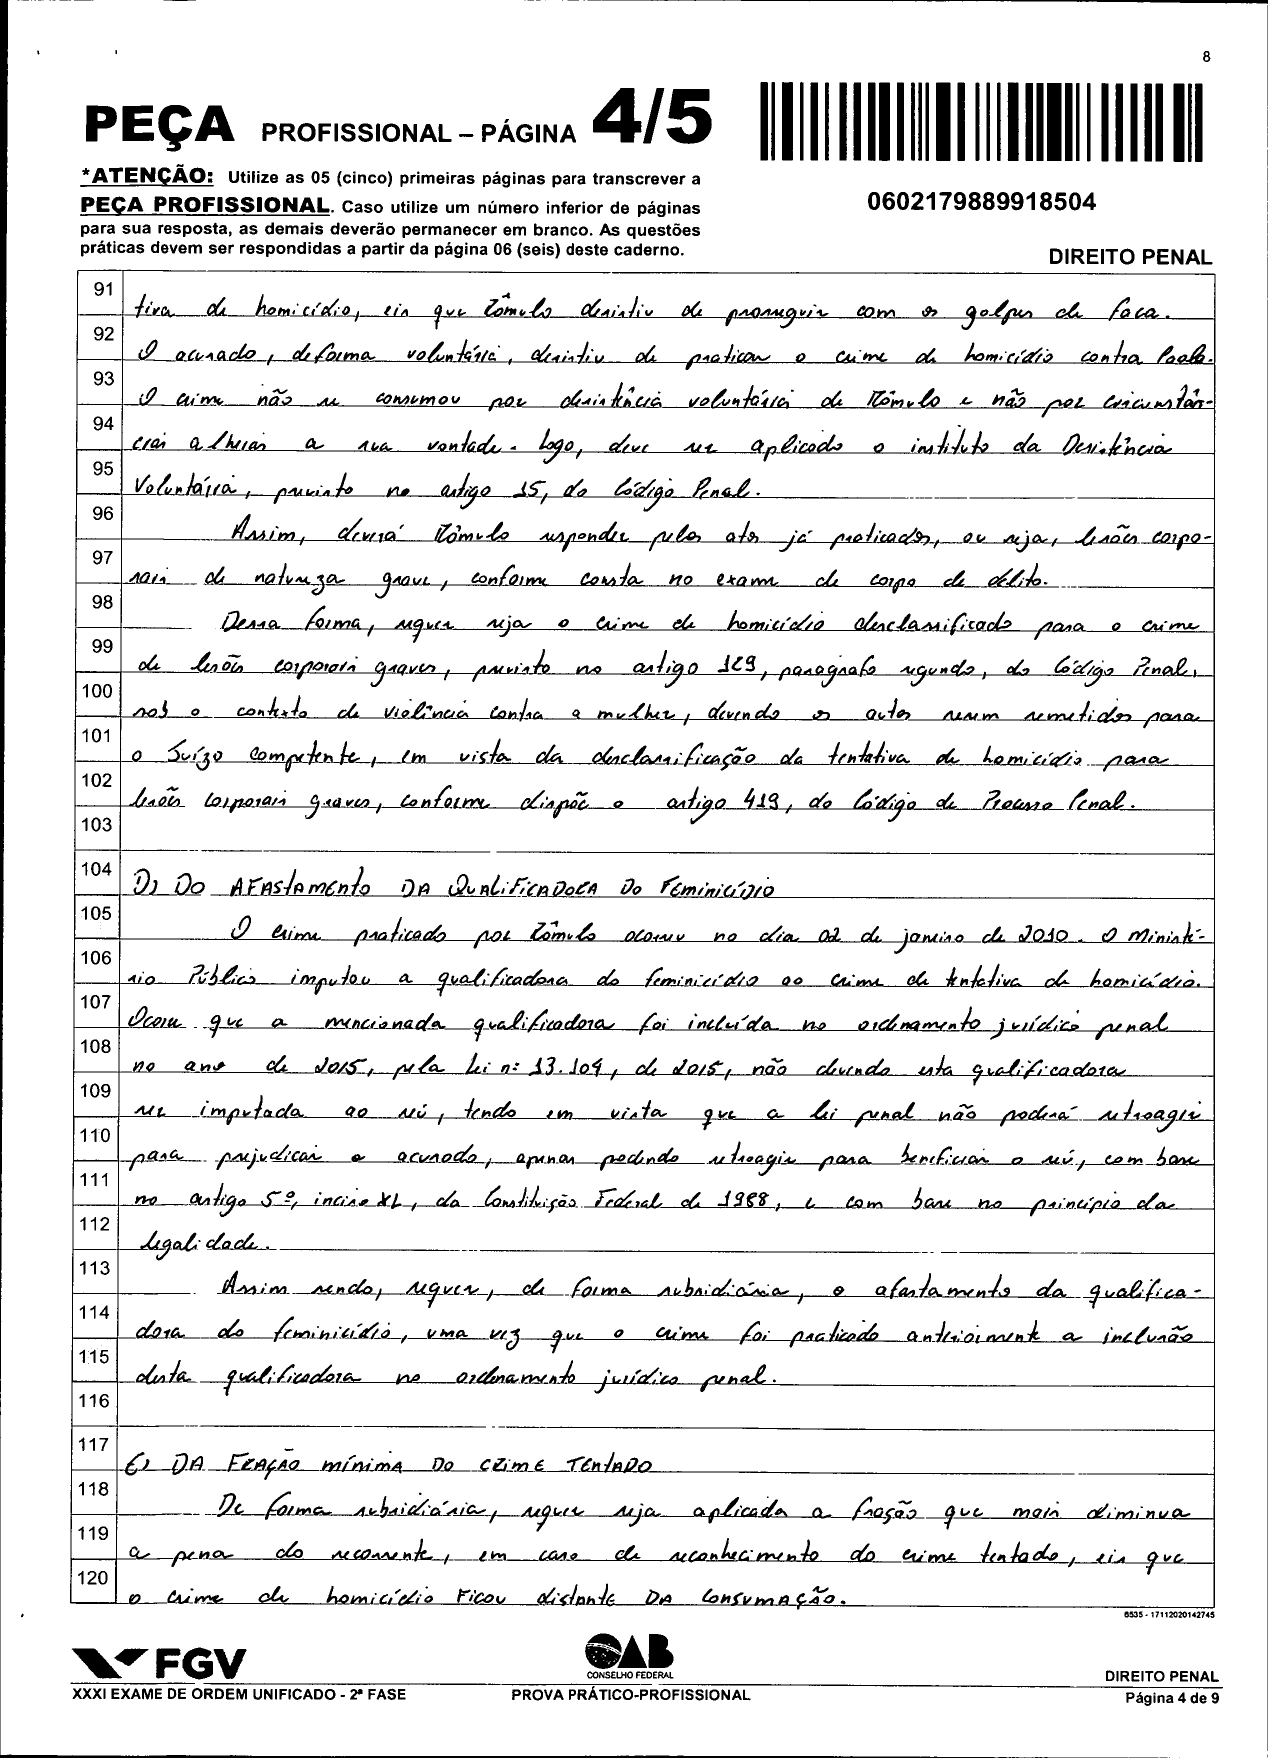 8
PEÇA PROFISSIONAL – PÁGINA 4/5
*ATENÇÃO: Utilize as 05 (cinco) primeiras páginas para transcrever a
PEÇA PROFISSIONAL. Caso utilize um número inferior de páginas
para sua resposta, as demais deverão permanecer em branco. As questões
práticas devem ser respondidas a partir da página 06 (seis) deste caderno.
0602179889918504
DIREITO PENAL
91 tiva de homicídio, eis que Rômulo desistiu de prosseguir com os golpes de faca.
92 O acusado, de forma voluntária, desistiu de praticar o crime de homicídio contra Paola.
93 O crime não se consumou por desistência voluntária de Rômulo e não por circunstân-
94 cias alheias a sua vontade. Logo, deve ser aplicado o instituto da Desistência
95 Voluntária, previsto no artigo 15, do Código Penal.
96 Assim, deverá Rômulo responder pelos atos já praticados, ou seja, lesões corpo-
97 rais de natureza grave, conforme consta no exame de corpo de delito.
98 Dessa forma, requer seja o crime de homicídio desclassificado para o crime
99 de lesões corporais graves, previsto no artigo 129, parágrafo segundo, do Código Penal,
100 sob o contexto de violência contra a mulher, devendo os autos serem remetidos para
101 o Juízo competente, em vista da desclassificação da tentativa de homicídio para
102 lesões corporais graves, conforme dispõe o artigo 419, do Código de Processo Penal.
103
104 D) DO AFASTAMENTO DA QUALIFICADORA DO FEMINICÍDIO
105 O crime praticado por Rômulo ocorreu no dia 02 de janeiro de 2010. O Ministé-
106 rio Público imputou a qualificadora do feminicídio ao crime de tentativa de homicídio.
107 Ocorre que a mencionada qualificadora foi incluída no ordenamento jurídico penal
108 no ano de 2015, pela Lei nº 13.104, de 2015, não devendo esta qualificadora
109 ser imputada ao réu, tendo em vista que a lei penal não poderá retroagir
110 para prejudicar o acusado, apenas podendo retroagir para beneficiar o réu, com base
111 no artigo 5º, inciso XL, da Constituição Federal de 1988, e com base no princípio da
112 legalidade.
113 Assim sendo, requer, de forma subsidiária, o afastamento da qualifica-
114 dora do feminicídio, uma vez que o crime foi praticado anteriormente a inclusão
115 desta qualificadora no ordenamento jurídico penal.
116
117 E) DA FRAÇÃO MÍNIMA DO CRIME TENTADO
118 De forma subsidiária, requer seja aplicada a fração que mais diminua
119 a pena do recorrente, em caso de reconhecimento do crime tentado, eis que
120 o crime de homicídio FICOU distante DA CONSUMAÇÃO.
6535 - 17112020142745
FGV
XXXI EXAME DE ORDEM UNIFICADO - 2ª FASE
OAB
CONSELHO FEDERAL
PROVA PRÁTICO-PROFISSIONAL
DIREITO PENAL
Página 4 de 9